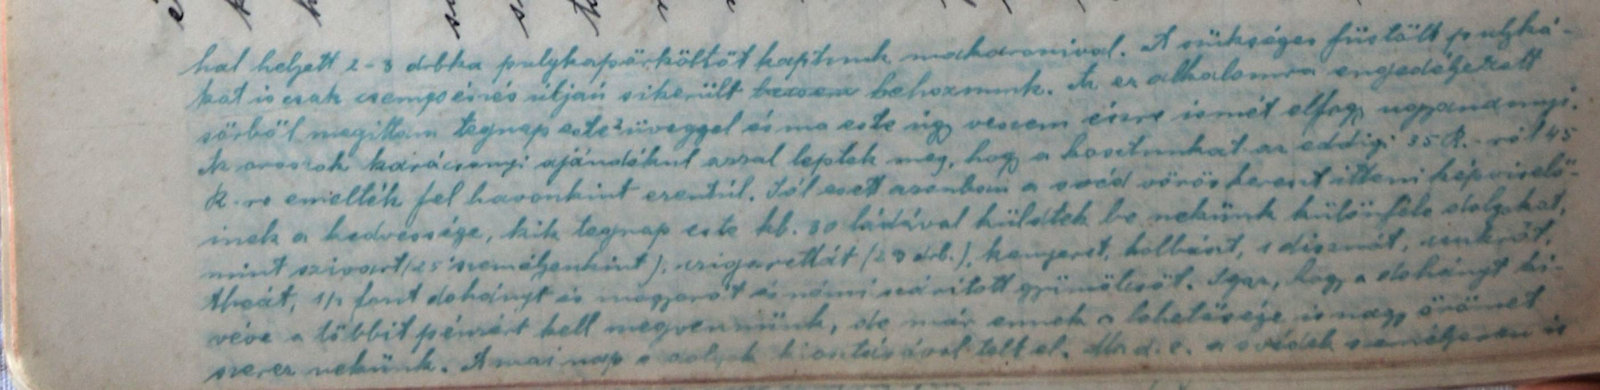 hal helyett 2-3 drbka pulykapörköltöt kaptunk makarónival. A szükséges füstölt pulyká-
kat is csak csempészés útján sikerült behoznunk. Az ez alkalomra engedélyezett
sörből megittam tegnap este 2 üveggel és ma este úgy veszem észre ismét elfogy ugyanannyi.
Az oroszok karácsonyi ajándékul azzal leptek meg, hogy a kosztunkat az eddigi 35 R.-ről 45
R.-re emelték fel havonkint ezentúl. Jól esett azonban a svéd vöröskereszt itteni képviselő-
inek a kedvessége, kik tegnap este kb. 30 ládával küldtek be nekünk különféle dolgokat,
mint szivart (25 személyenkint), cigarettát (23 drb.), kenyeret, kolbászt, 1 disznót, cukrot,
theát, 1/2 font dohányt és mogyorót és némi szárított gyümölcsöt. Igaz, hogy a dohányt ki-
véve a többit pénzért kell megvennünk, de már ennek a lehetősége is nagy örömet
szerez nekünk. A mai nap a dolgok kiosztásával telt el. Ma d. e. a svédek személyesen is